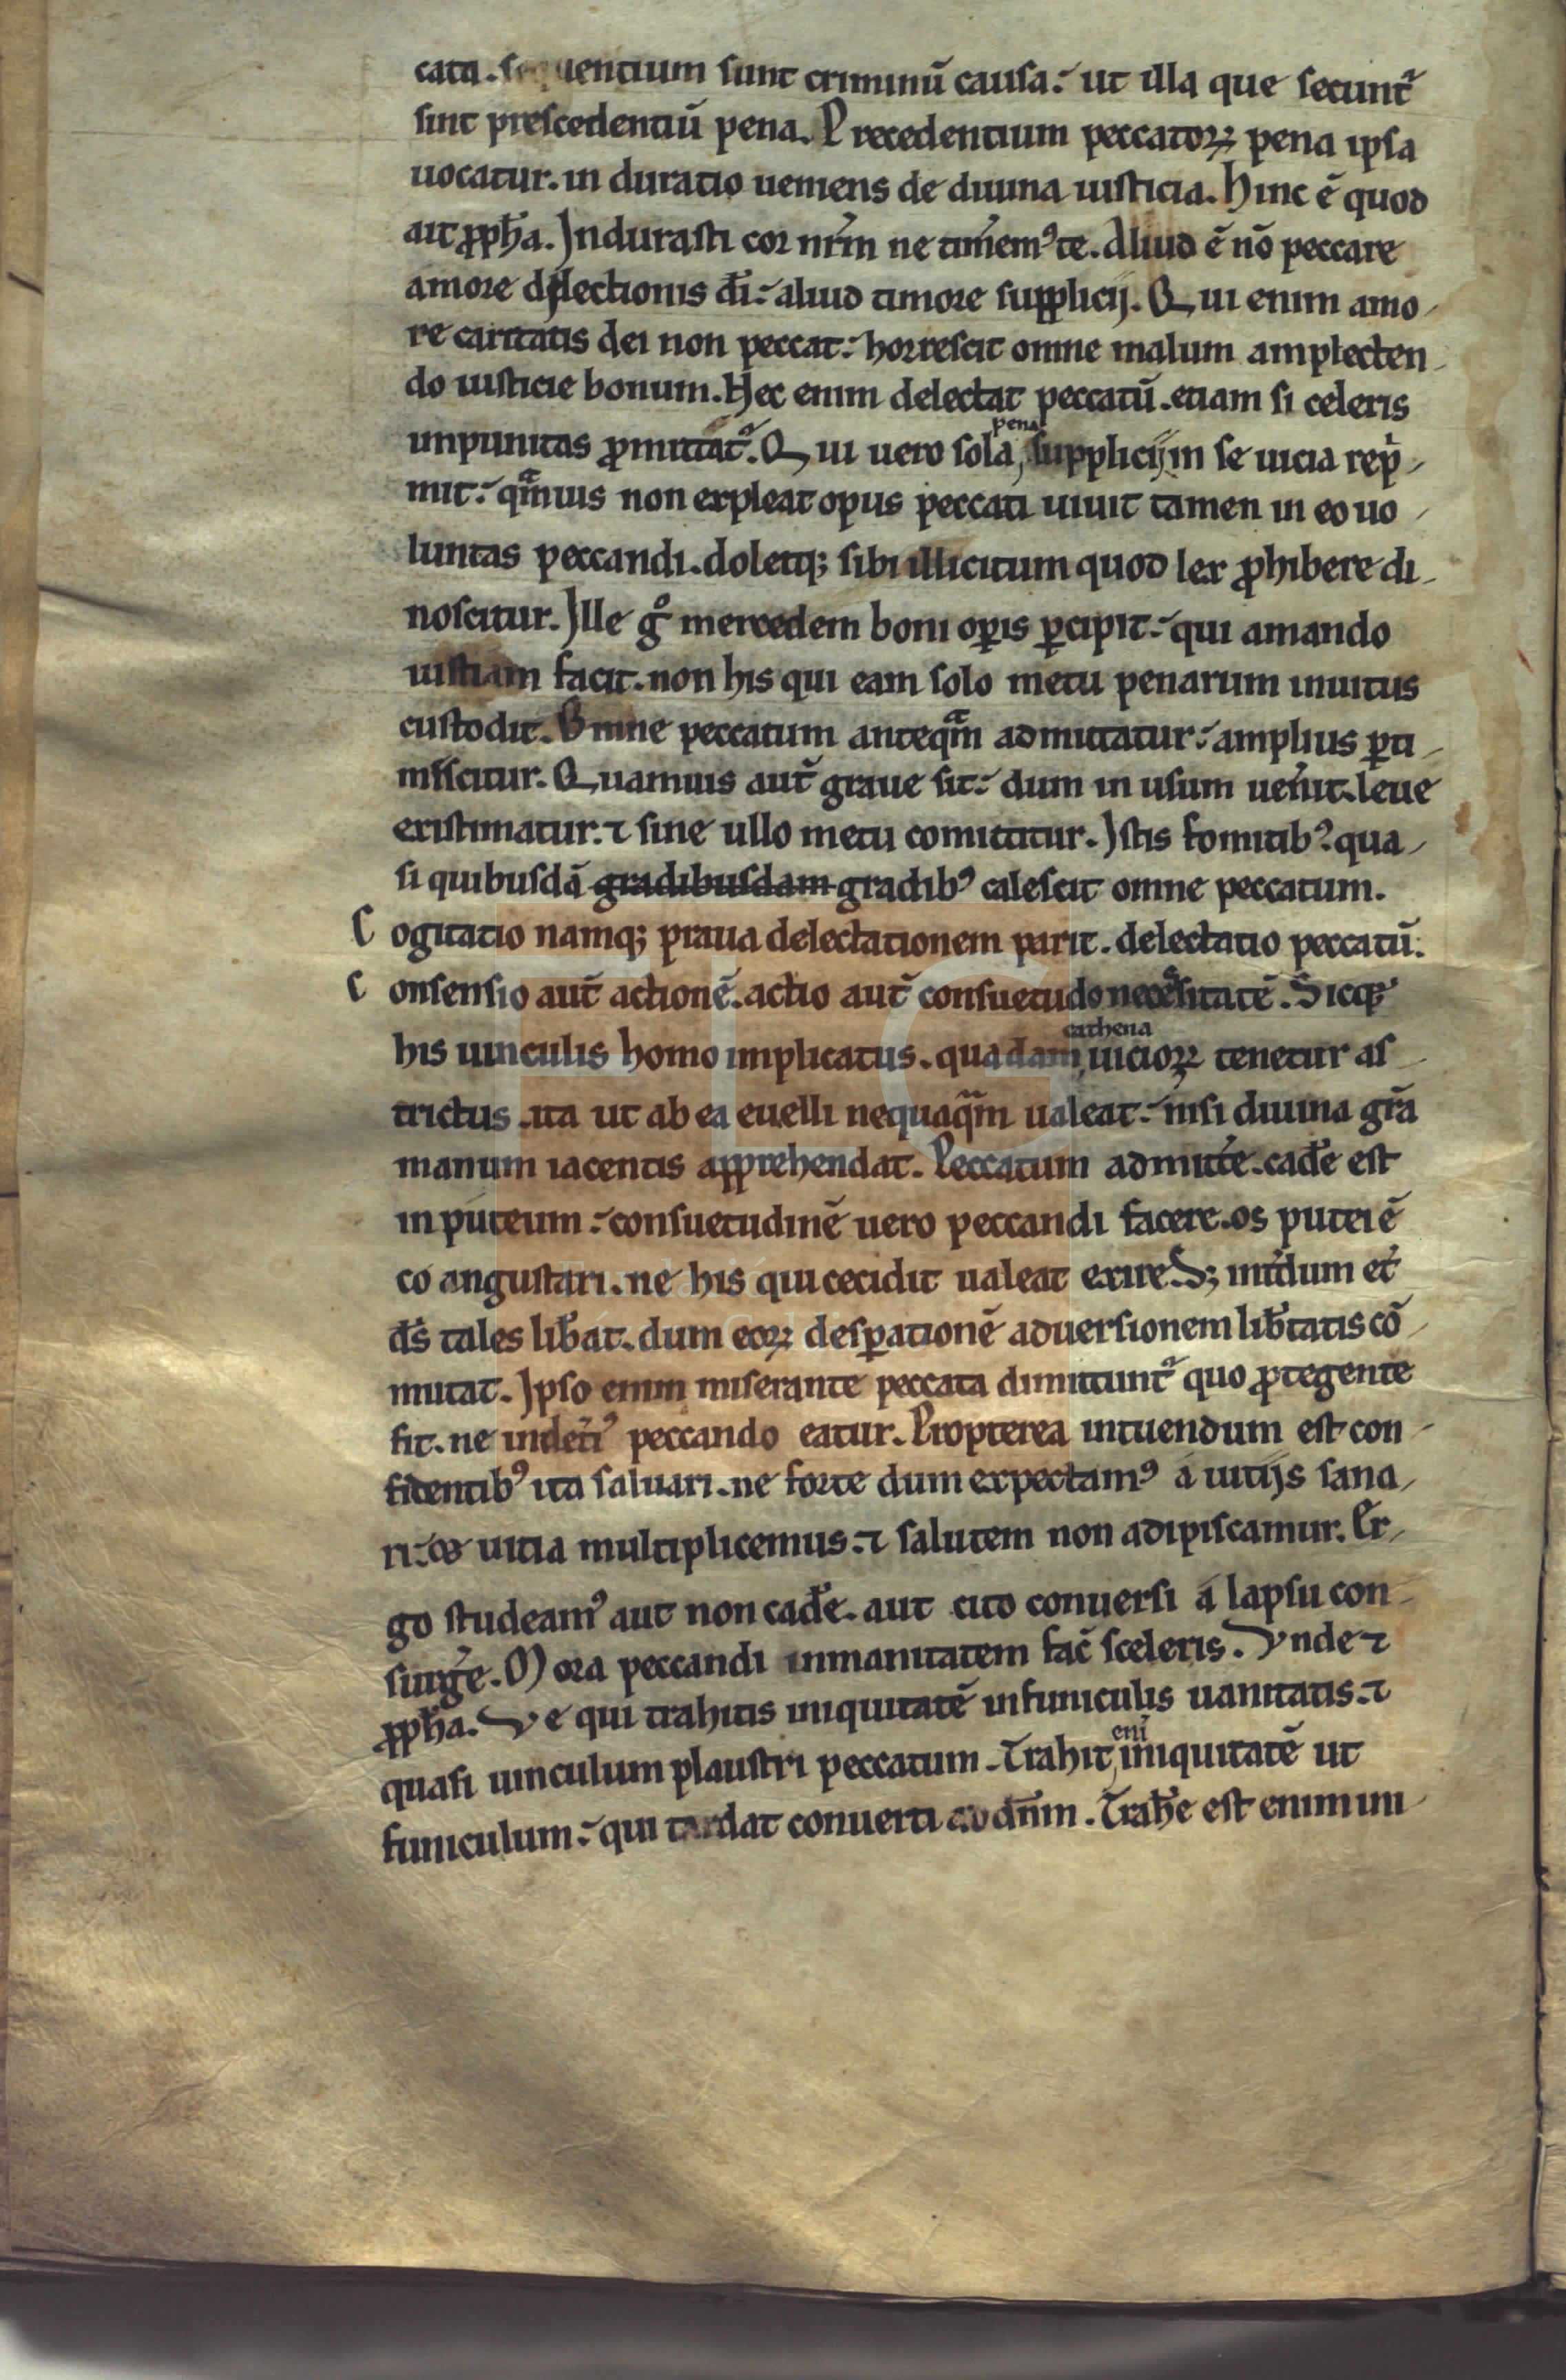 cata. sequentium sunt criminū causa. ut illa que secunt᷑
sint prescedentiū pena. Precedentium peccatoꝝ pena ipsa
uocatur. in duratio uemens de diuina iusticia. Hinc ē quod
ait ꝓph̄a. Indurasti cor nr̄m ne timem᷒ te. Aliud ē nō peccare
amore dilectionis dī. aliud timore supplicij. Qui enim amo
re caritatis dei non peccat. horrescit omne malum amplecten
do iusticie bonum. Nec enim delectat peccatū. etiam si celeris
inpunitas ꝓmittat᷑. Qui uero sola pena supplicij in se uicia rep̍
mit. qᷓmuis non expleat opus peccati uiuit tamen in eo uo
luntas peccandi. doletqꝫ sibi illicitum quod lex ꝓhibere di
noscitur. Ille gͦ mercedem boni oꝑis ꝑcipit. qui amando
iustiam facit. non his qui eam solo metu penarum inuitus
custodit. Omne peccatum anteqᷓm admittatur. amplius ꝑti
miscitur. Quamuis aut̄ graue sit. dum in usum uen̍it. leue
existimatur. ⁊ sine ullo metu comittitur. Istis fomitib᷒. qua
si quibusdā gradibusdam gradib᷒ calescit omne peccatum.
Cogitatio namqꝫ praua delectationem parit. delectatio peccatū.
Consensio aut̄ actionē. actio aut̄ consuetudo necessitatē. Sicqꝫ
his uinculis homo implicatus. quadam cathena uicioꝝ tenetur as
trictus. ita ut ab ea euelli nequaqᷓm ualeat. nisi diuina gr̄a
manum iacentis apprehendat. Peccatum admitt̍e. cad̍e est
in puteum. consuetudinē uero peccandi facere. os putei ē
co angustari. ne his qui cecidit ualeat exire. Sꝫ int̍dum et̍
ds̄ tales lib̍at. dum eoꝝ desꝑationē aduersionem lib̍tatis cō
mutat. Ipso enim miserante peccata dimittunt᷑ quo ꝓtegente
fit. ne in det̍i᷒ peccando eatur. Propterea intuendum est con
fidentib᷒ ita saluari. ne forte dum expectam᷒ a uitijs sana
ri. uitia multiplicemus. ⁊ salutem non adipiscamur. Er
go studeam᷒ aut non cad̍e. aut cito conuersi a lapsu con
surg̍e. Mora peccandi inmanitatem fac̄ sceleris. Vnde ⁊
ꝓph̄a. Ve qui trahitis iniquitatē in funiculis uanitatis. ⁊
quasi uinculum plaustri peccatum. Trahit enī iniquitatē ut
funiculum. qui tardat conuerti ad dn̄m. Trah̍e est enim ini